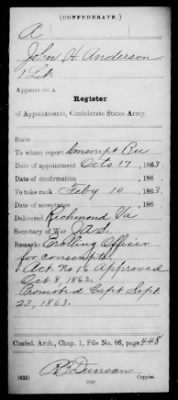 (CONFEDERATE.)
A
John H. Anderson
1 Lt.
Appears on a
Register
of Appointments, Confederate States Army.
State
To whom report Conscript Bu
Date of appointment Octo 17, 1863
Date of confirmation , 186
To take rank Feby 10 1863.
Date of acceptance , 186
Delivered Richmond Va
Secretary of War JAS.
Remarks Enrolling Officer
for conscripts.
Act No 16 Approved
Oct 8, 1862.
Promoted Capt Sept
23, 1863.
Confed. Arch., Chap. 1, File No. 86, page 448
(635) R B Duncan
Copyist.